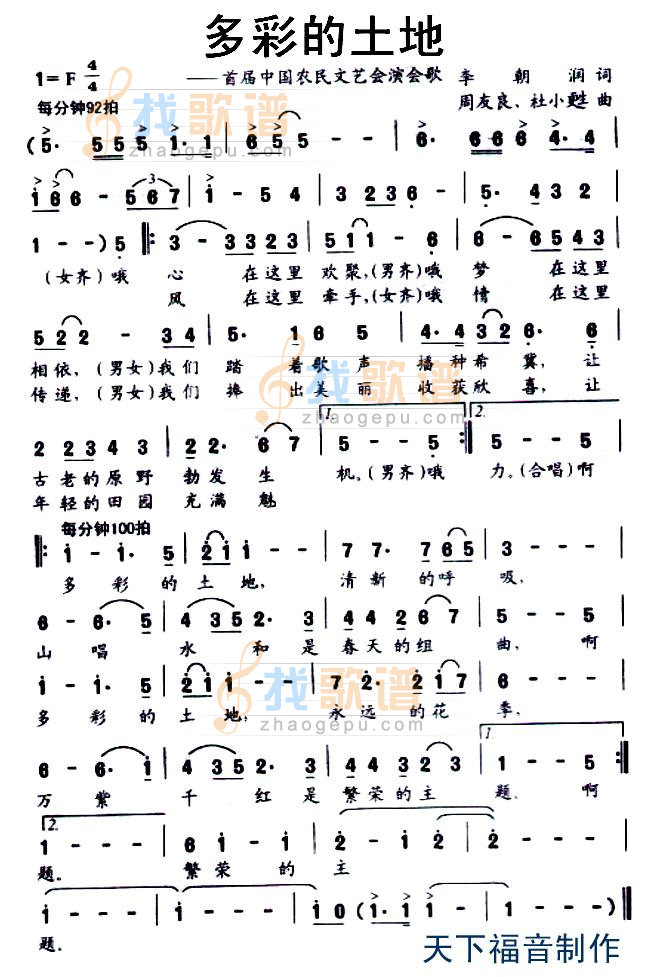 多彩的土地
1=F 4/4 ——首届中国农民文艺会演会歌 李朝润词
每分钟92拍 周友良、杜小甦曲
(5· 555 1·1 | 65 5 - - | 6· 666 4·3
1 6 6 - 567 | 1 - 5 4 | 3 236 - | 5· 432
1 - -) 5 |: 3 - 3323 | 511 - 6 | 6 - 6543
(女齐)哦 心 在这里 欢聚,(男齐)哦 梦 在这里
风 在这里 牵手,(女齐)哦 情 在这里
522 - 34 | 5· 1 6 5 | 4· 432 6· 6
相依,(男女)我们 踏 着歌声 播种希冀,让
传递,(男女)我们 捧 出美丽 收获欣喜,让
2 2343 | 22· - 67 | 1. 5 - - 5 :| 2. 5 - - 5
古老的原野 勃发生 机。(男齐)哦 力。(合唱)啊
年轻的田园 充满魅
每分钟100拍
|: 1 - 1· 5 | 2 1 1 - - | 7 7· 765 | 3 - - -
多彩的土地, 清新的呼吸,
6 - 6· 5 | 4 352· 3 | 442 67 | 5 - - 5
山唱 水和是春天的组曲,啊
1 - 1· 5 | 2 1 1 - - | 7 2· 217 | 5 - - -
多彩的土地, 永远的花季,
6 - 6· 1 | 4 352· 3 | 44323 | 1. 1 - - 5 :|
万紫 千红是繁荣的主 题。啊
2. 1 - - - | 6 1 - 1 | 2 - 1 2 | 2 - - -
题。 繁荣的主
1 - - - | 1 - - - | 1 0 (1· 1 | 1 - - -) ‖
题。
天下福音制作
找歌谱
zhaogepu.com
找歌谱
zhaogepu.com
找歌谱
zhaogepu.com